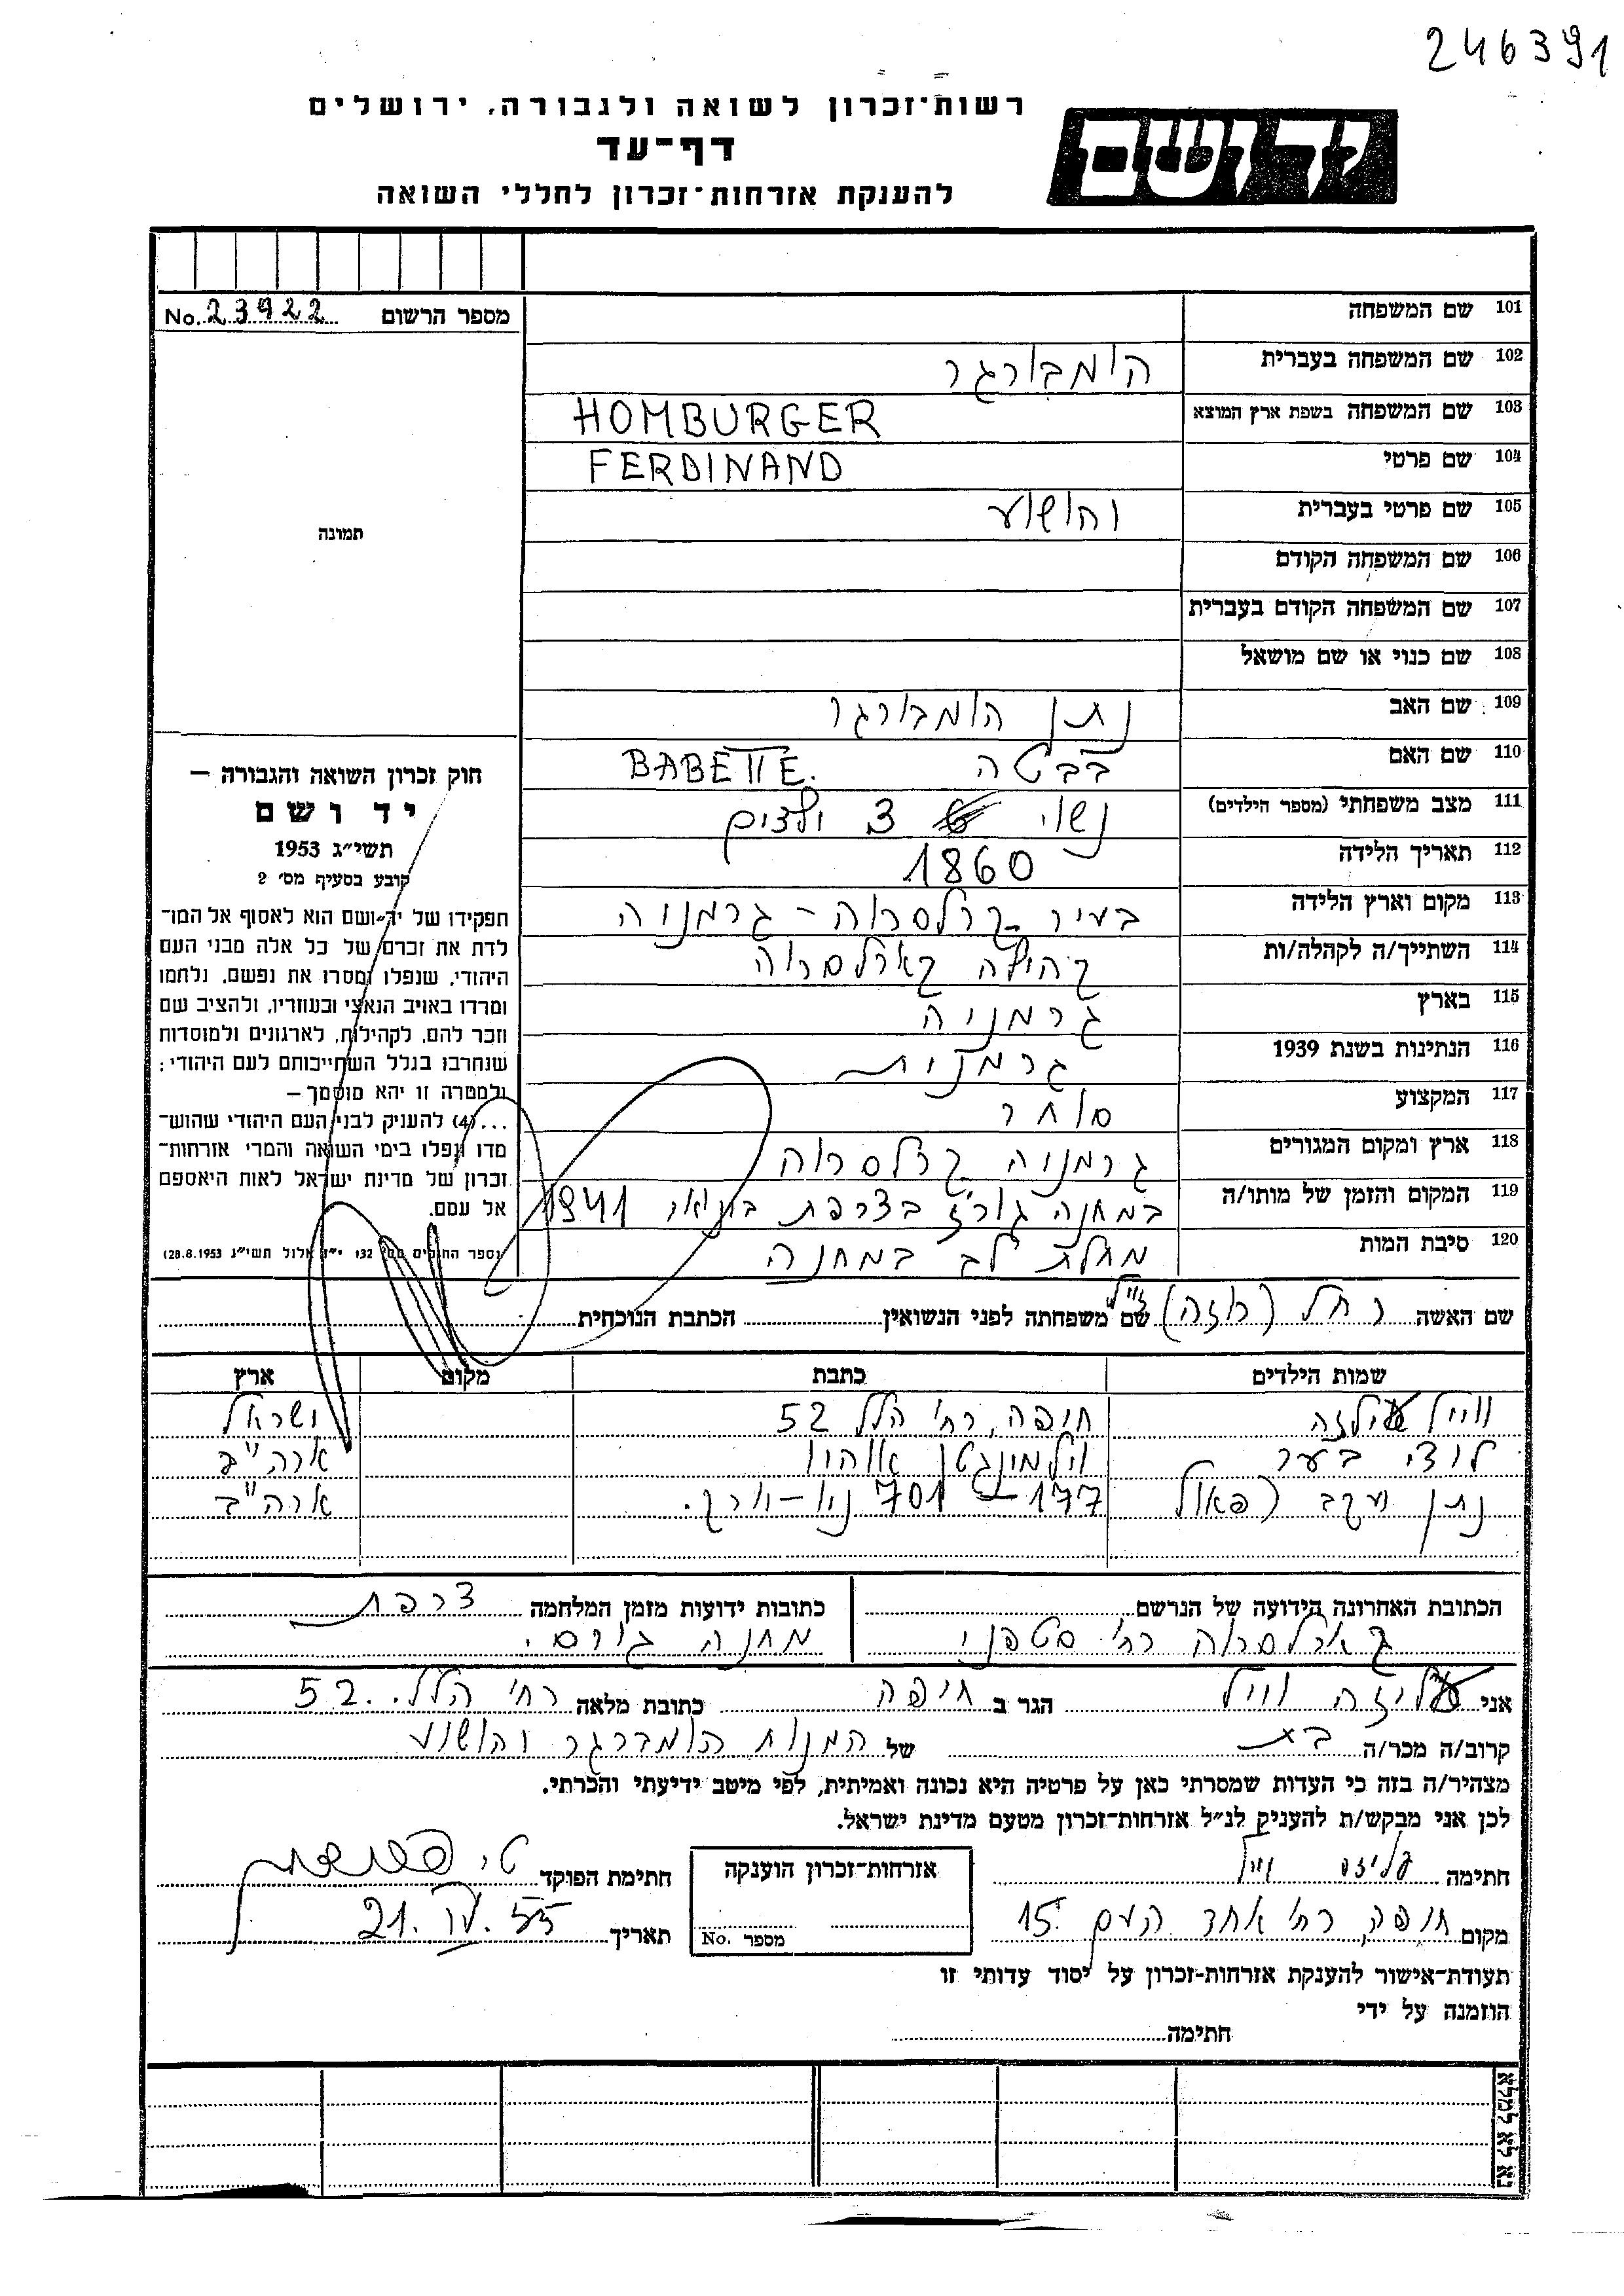 246391
יד ושם
רשות-זכרון לשואה ולגבורה, ירושלים
דף-עד
להענקת אזרחות-זכרון לחללי השואה
מספר הרשום No. 23922
תמונה
101 שם המשפחה
102 שם המשפחה בעברית הומבורגר
103 שם המשפחה בשפת ארץ המוצא HOMBURGER
104 שם פרטי FERDINAND
105 שם פרטי בעברית יהושוע
106 שם המשפחה הקודם
107 שם המשפחה הקודם בעברית
108 שם כנוי או שם מושאל
109 שם האב נתן הומבורגר
110 שם האם בבטה BABETTE.
111 מצב משפחתי (מספר הילדים) נשוי 3 ילדים
112 תאריך הלידה 1860
113 מקום וארץ הלידה בעיר קרלסרוה - גרמניה
114 השתייך/ה לקהלה/ות קהילה קארלסרוה
115 בארץ גרמניה
116 הנתינות בשנת 1939 גרמנית
117 המקצוע סוחר
118 ארץ ומקום המגורים גרמניה קרלסרוה
119 המקום והזמן של מותו/ה במחנה גורז בצרפת בינואר 1941
120 סיבת המות מחלת לב במחנה
חוק זכרון השואה והגבורה —
יד ושם
תשי״ג 1953
קובע בסעיף מס׳ 2
תפקידו של יד-ושם הוא לאסוף אל המו-
לדת את זכרם של כל אלה מבני העם
היהודי, שנפלו ומסרו את נפשם, נלחמו
ומרדו באויב הנאצי ובעוזריו, ולהציב שם
וזכר להם, לקהילות, לארגונים ולמוסדות
שנחרבו בגלל השתייכותם לעם היהודי;
ולמטרה זו יהא מוסמך —
...(4) להעניק לבני העם היהודי שהוש-
מדו ונפלו בימי השואה והמרי אזרחות-
זכרון של מדינת ישראל לאות היאספם
אל עמם.
(ספר החוקים מס׳ 132 י״ז אלול תשי״ג 28.8.1953)
שם האשה רחל (רוזה) ז״ל שם משפחתה לפני הנשואין הכתבת הנוכחית
שמות הילדים כתבת מקום ארץ
ווייל עליזה חיפה, רח׳ הלל 52 ישראל
לוצי בער וילמינגטן אוהיו ארה״ב
נתן יעקב (פאול 177 - 701 ניו-יורק. ארה״ב
הכתובת האחרונה הידועה של הנרשם קארלסרוה רח׳ סטפני
כתובות ידועות מזמן המלחמה צרפת
מחנה גורס.
אני עליזה ווייל הגר ב חיפה כתובת מלאה רח׳ הלל 52
קרוב/ה מכר/ה בת של המנוח הומברגר יהושוע
מצהיר/ה בזה כי העדות שמסרתי כאן על פרטיה היא נכונה ואמיתית, לפי מיטב ידיעתי והכרתי.
לכן אני מבקש/ת להעניק לנ״ל אזרחות-זכרון מטעם מדינת ישראל.
חתימה עליזה וייל
אזרחות-זכרון הוענקה
מספר No.
חתימת הפוקד
מקום חיפה, רח׳ אחד העם 15
תאריך 21.IV.55
תעודת-אישור להענקת אזרחות-זכרון על יסוד עדותי זו
הוזמנה על ידי
חתימה
נא לא למלא